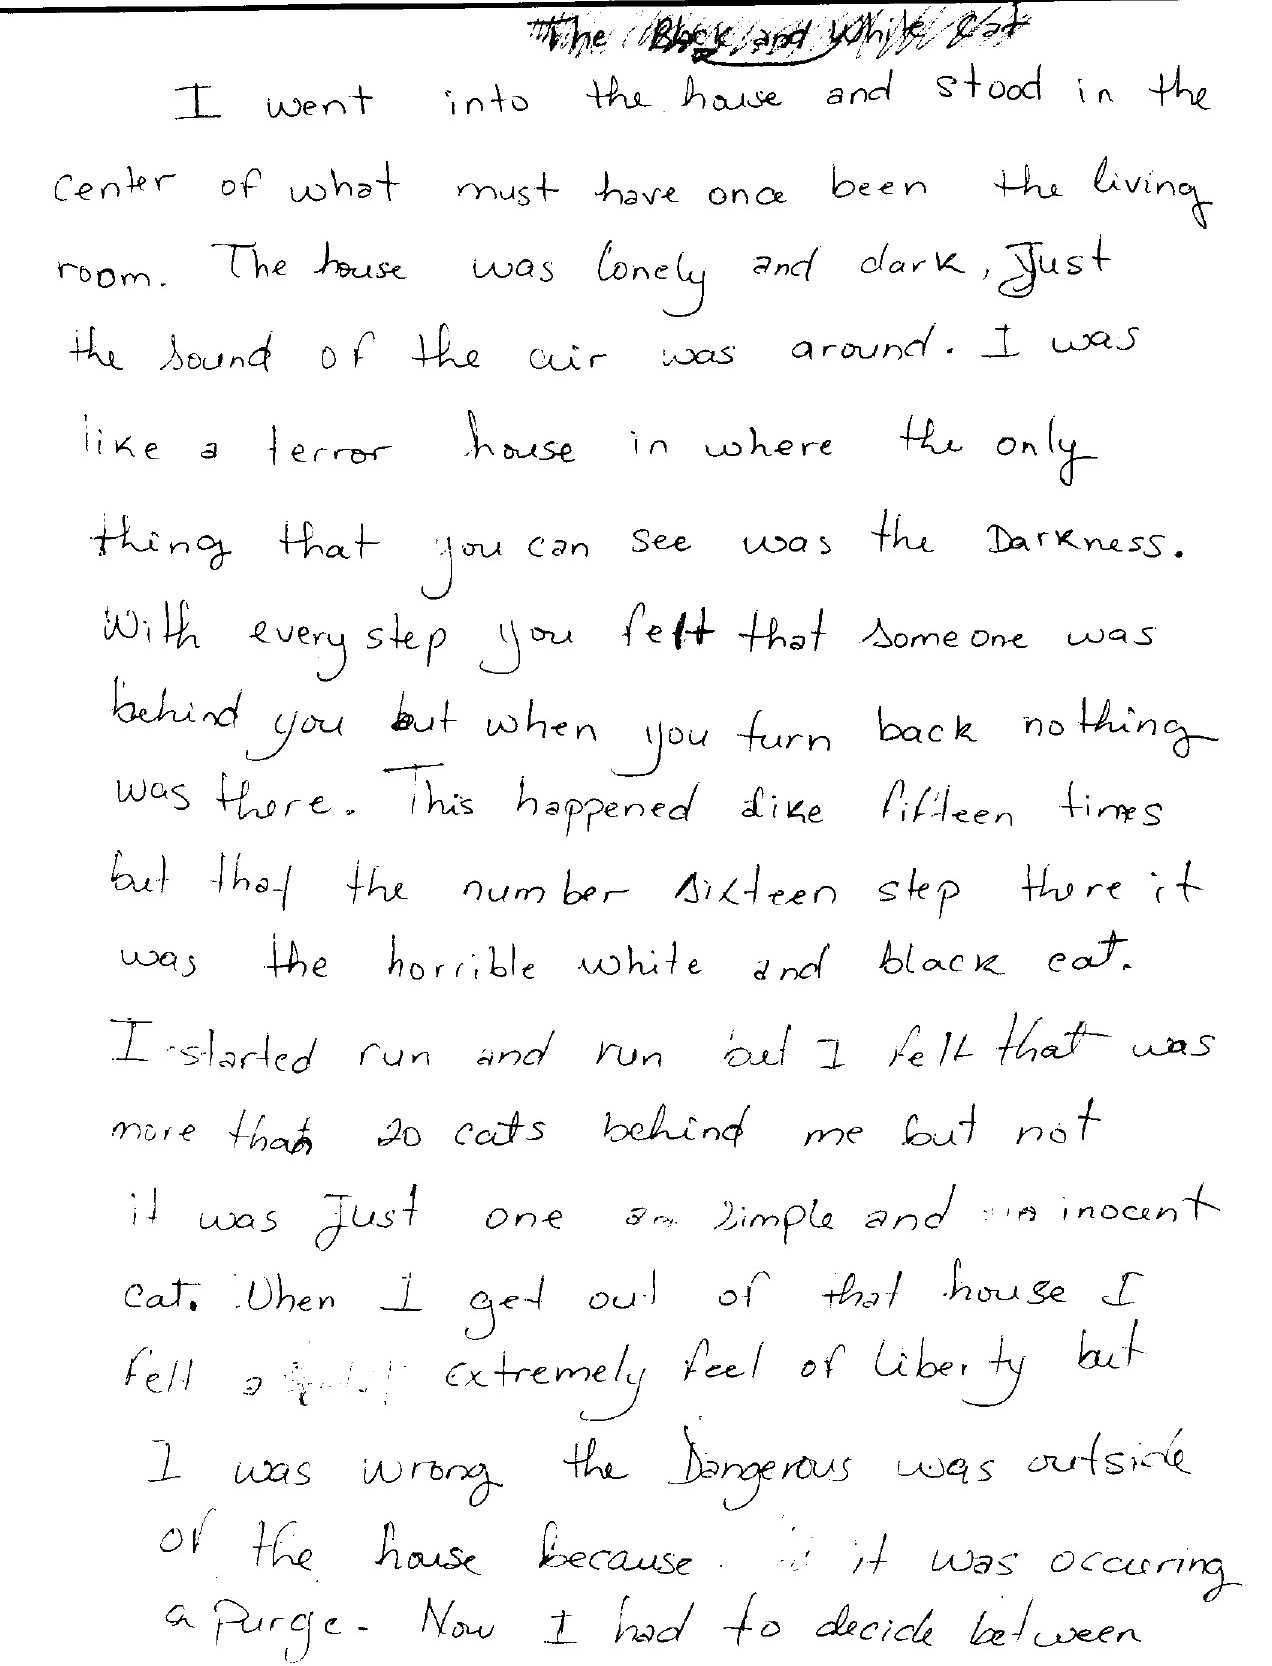 The Black and White Cat
I went into the house and stood in the
center of what must have once been the living
room. The house was lonely and dark, Just
the sound of the air was around. I was
like a terror house in where the only
thing that you can see was the Darkness.
With every step you felt that someone was
behind you but when you turn back nothing
was there. This happened like fifteen times
but that the number sixteen step there it
was the horrible white and black cat.
I started run and run but I felt that was
more than 20 cats behind me but not
it was Just one an simple and inocent
cat. When I get out of that house I
felt a extremely feel of liberty but
I was wrong the Dangerous was outside
of the house because it was occuring
a Purge. Now I had to decide between